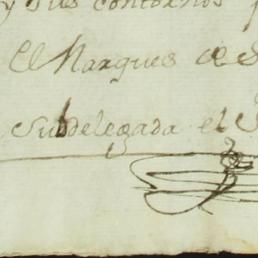 y sus contornos p
El Marques de S
Subdelegada el S